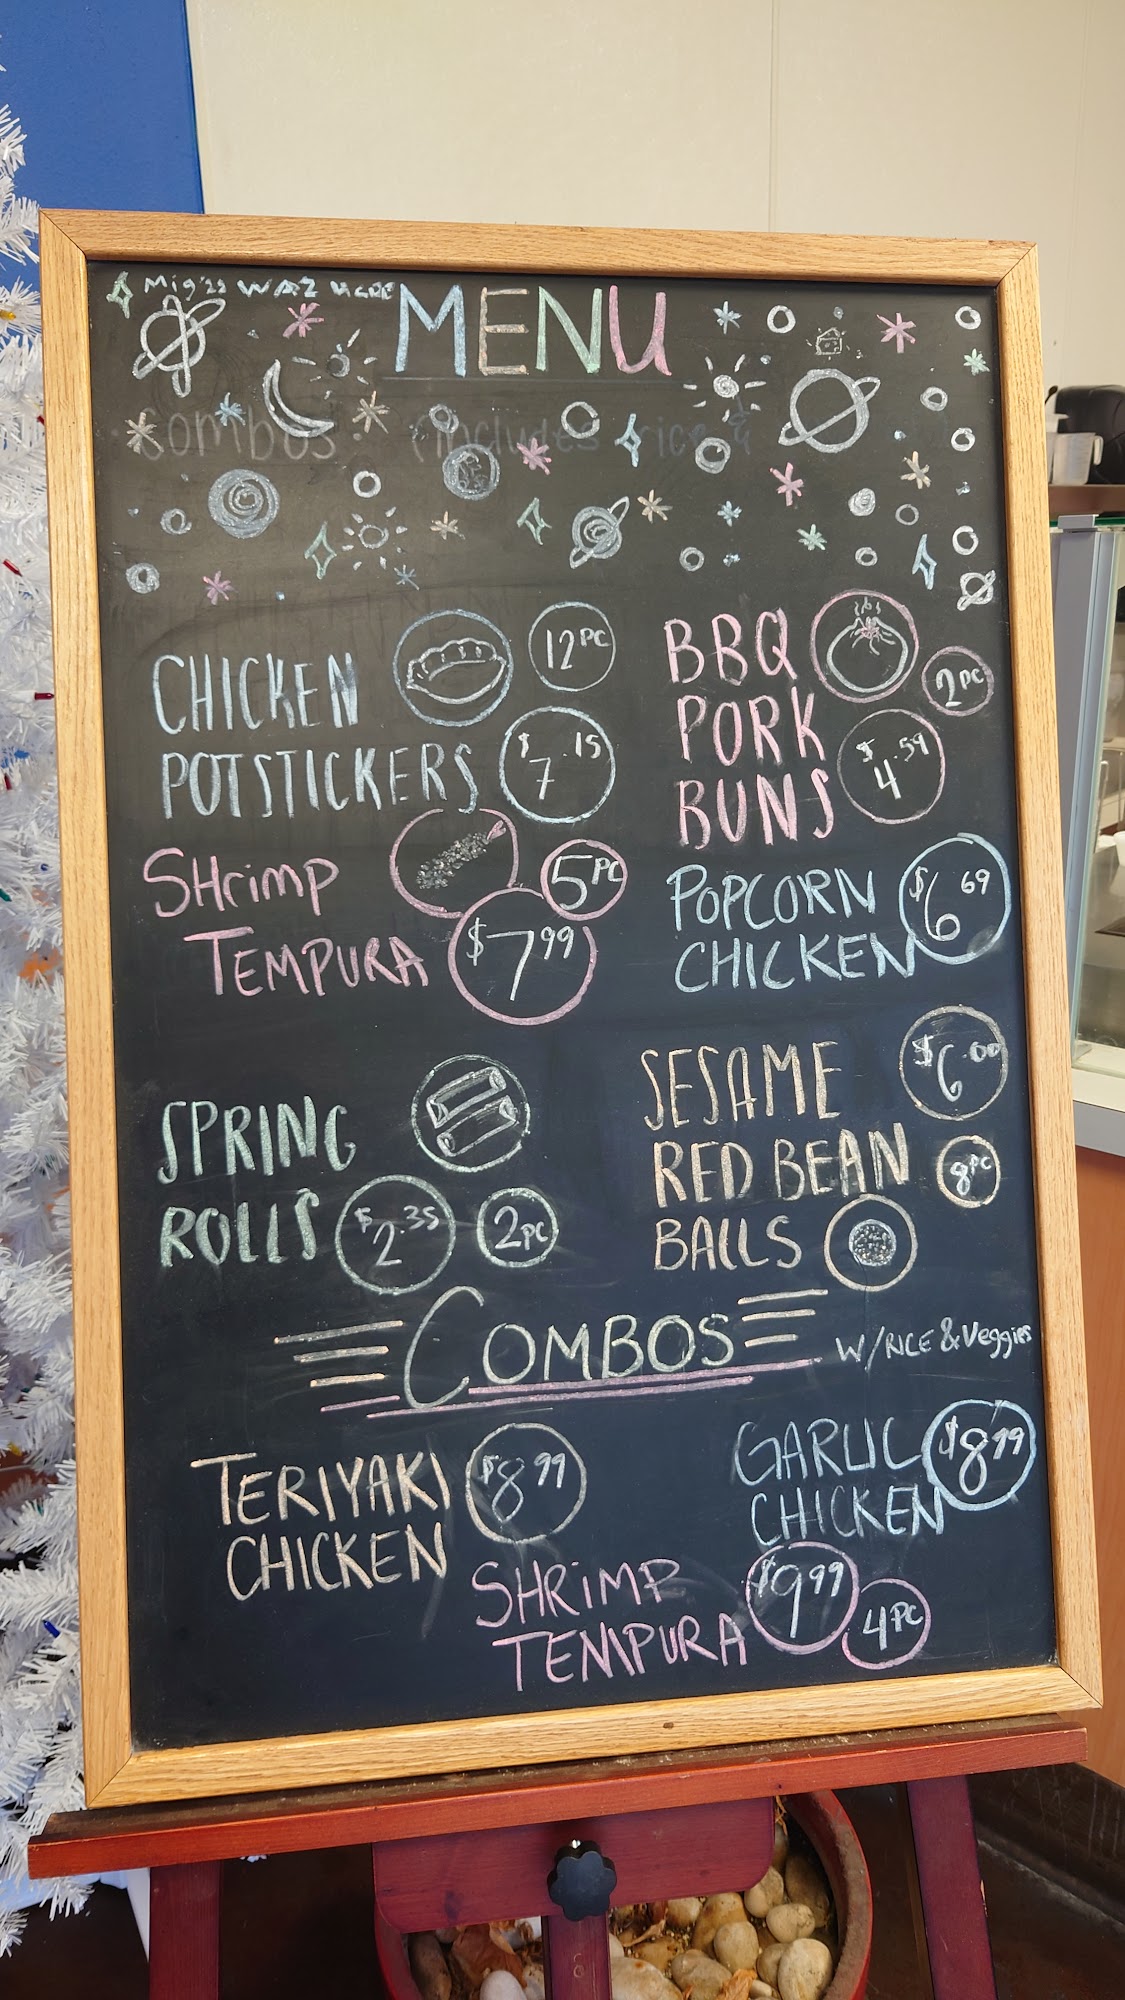 Mig'22 WAZ HERE
MENU
Combos: (includes rice &
CHICKEN
POTSTICKERS
12PC
$7.15
BBQ
PORK
BUNS
2PC
$4.59
SHrimp
TEMPURA
5PC
$7.99
POPCORN
CHICKEN
$6.69
SPRING
ROLLS
$2.35
2PC
SESAME
RED BEAN
BALLS
$6.00
8PC
COMBOS W/RICE & Veggies
TERIYAKI
CHICKEN
$8.99
GARLIC
CHICKEN
$8.99
SHRiMP
TEMPURA
$9.99
4PC